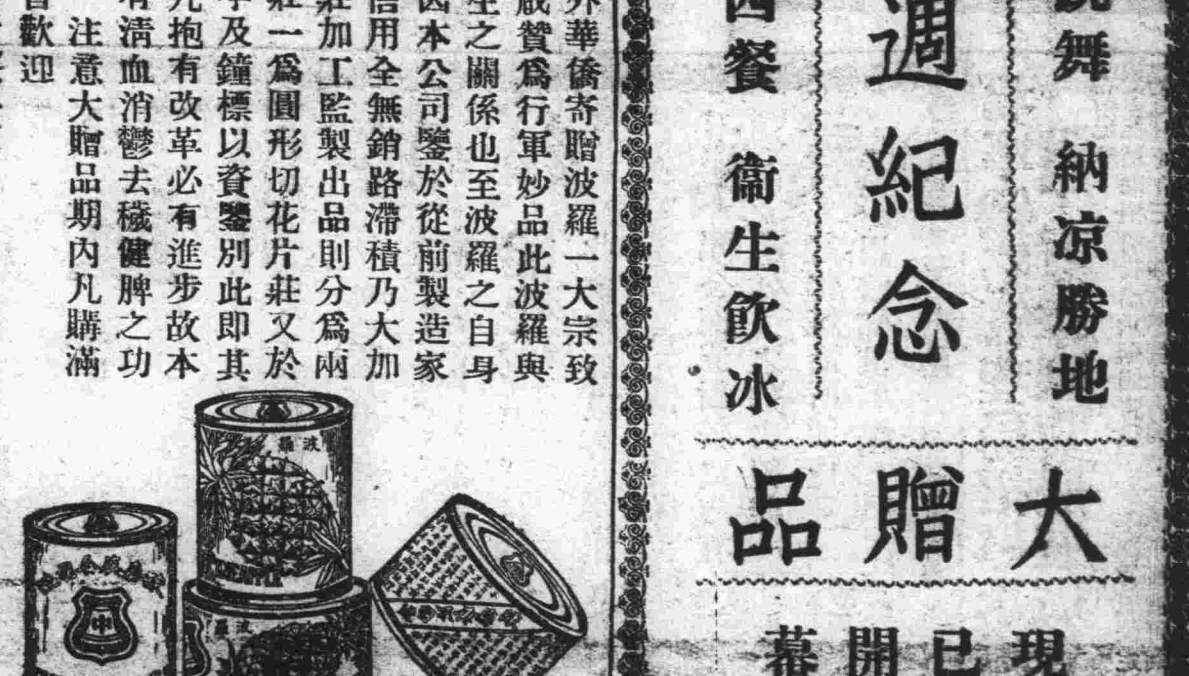 舞　納凉勝地
週紀念
西餐　衞生飲冰
大贈品
現已開幕
外華僑寄贈波羅一大宗致
咸贊爲行軍妙品此波羅與
生之關係也至波羅之自身
因本公司鑒於從前製造家
信用全無銷路滯積乃大加
莊加工監製出品則分爲兩
莊一爲圓形切花片莊又於
字及鐘標以資鑒別此即其
凡抱有改革必有進步故本
有淸血消鬱去穢健脾之功
注意大贈品期內凡購滿
歡迎
波羅
波羅
中